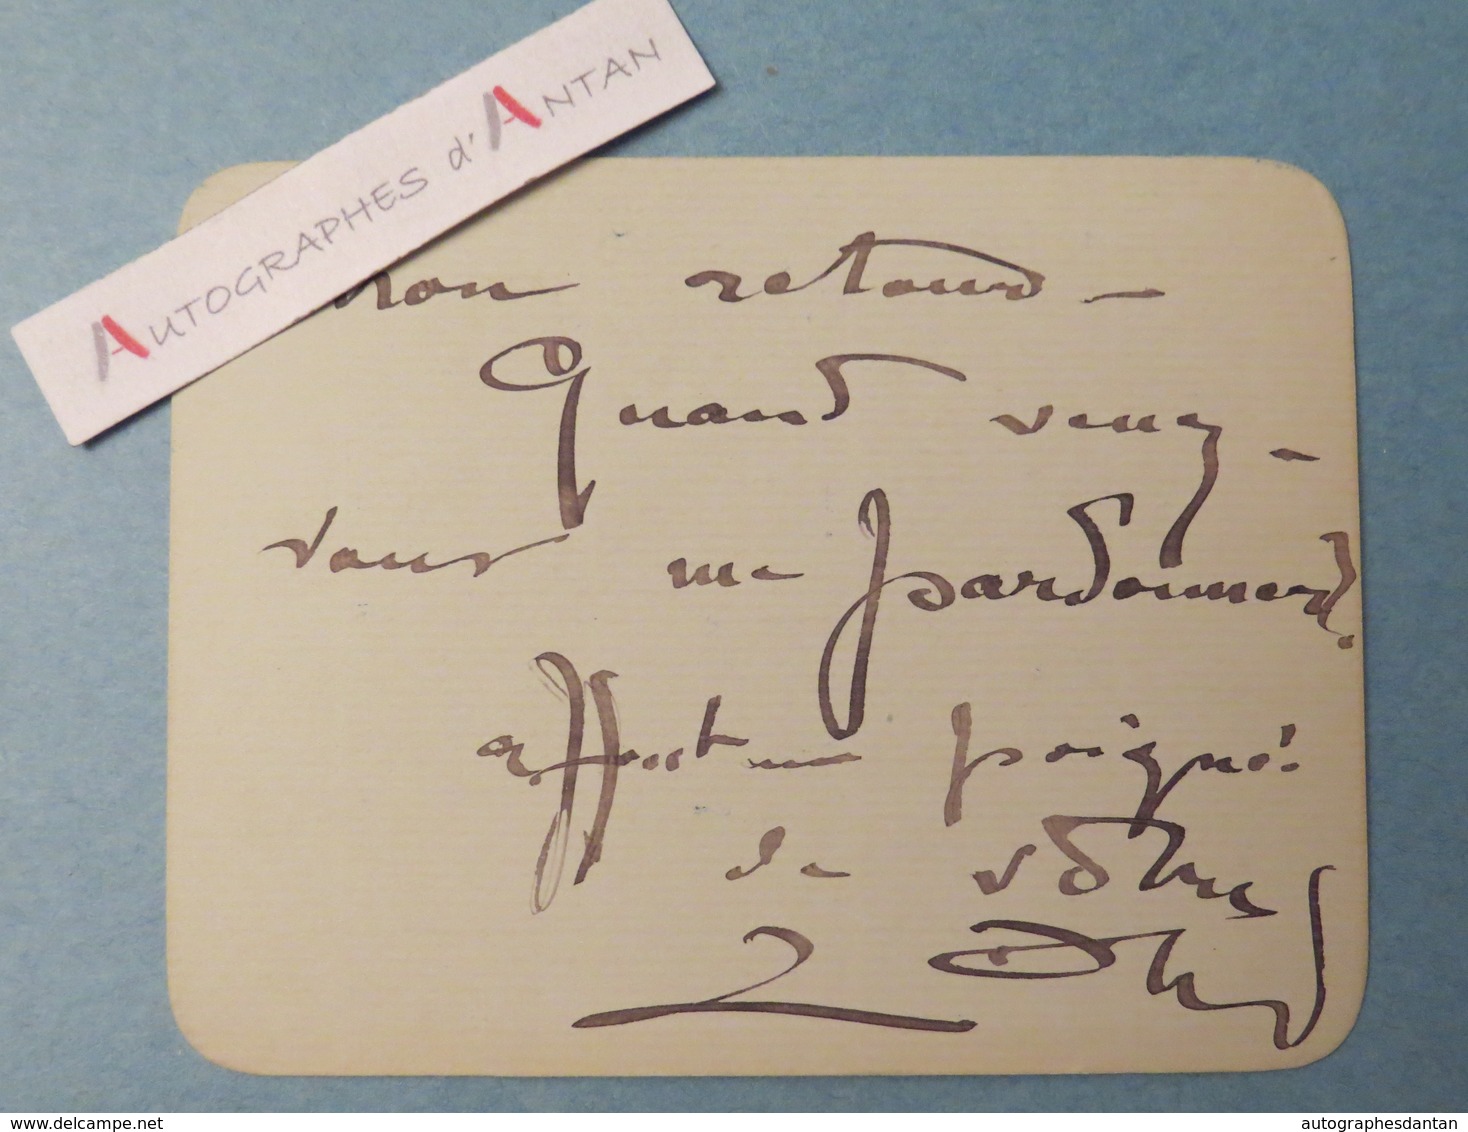 AUTOGRAPHES d'ANTAN
mon retour –
Quand venez –
vous me pardonner?
affect
poigné
de votre
© delcampe.net
autographesdantan